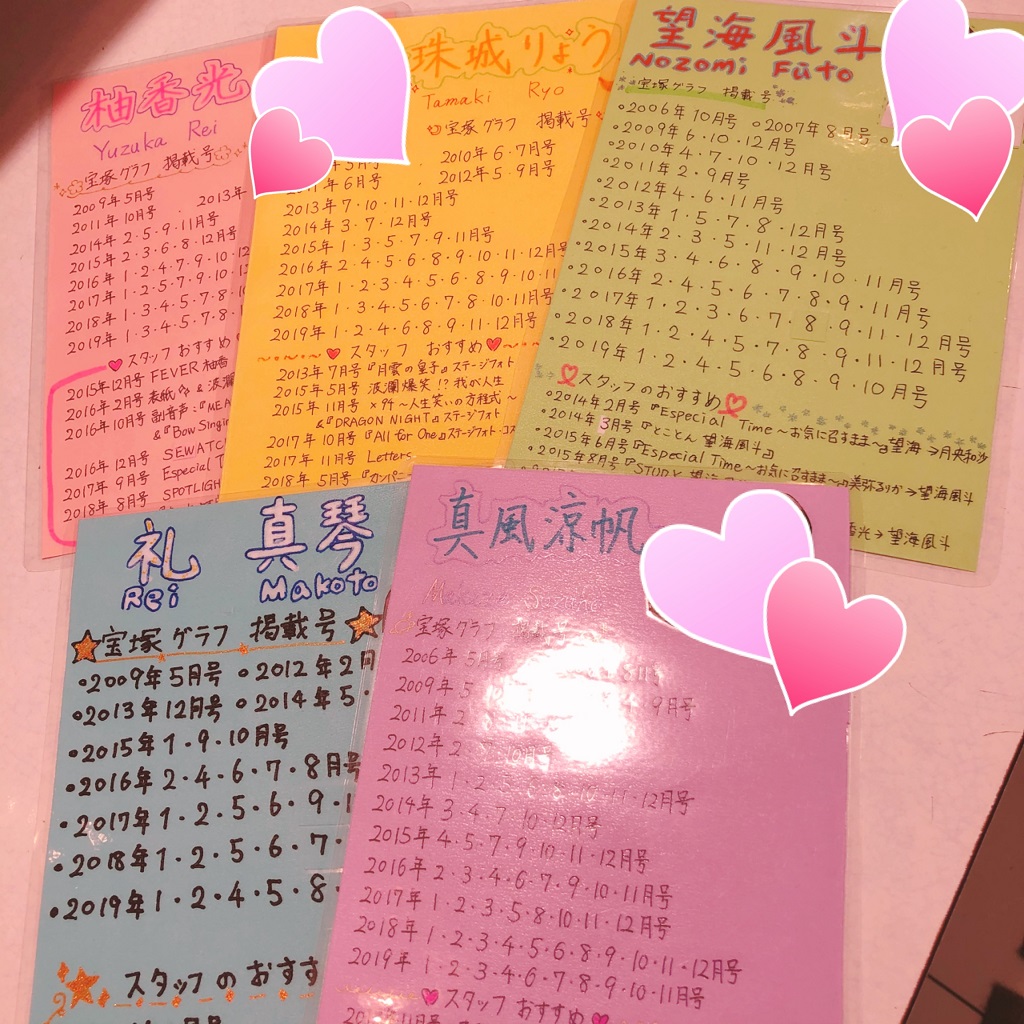 柚香光
Yuzuka Rei
宝塚グラフ 掲載号
2009年5月号
2011年10月号 ・ 2013年
2014年 2・5・9・11月号
2015年 2・3・6・8・12月号
2016年 1・2・4・7・9・10・12
2017年 1・2・5・7・8・10
2018年 1・3・4・5・7・8・10
2019年 1・3・4・5・7・8
スタッフおすすめ
2015年12月号 FEVER 柚香
2016年2月号 表紙 & 波瀾
2016年10月号 副音声:『MEA
&『Bow Singin
2016年 12月号 SEWATCH
2017年 9月号 Especial T
2018年 8月号 SPOTLIGH
珠城りょう
Tamaki Ryo
宝塚グラフ 掲載号
2010年 6・7月号
6月号 2012年 5・9月号
2013年 7・10・11・12月号
2014年 3・7・12月号
2015年 1・3・5・7・9・11月号
2016年 2・4・5・6・8・9・10・11・12月号
2017年 1・2・3・4・5・6・8・9・10・11
2018年 1・3・4・5・6・7・8・10・11月号
2019年 1・2・4・6・8・9・11・12月号
スタッフ おすすめ
2013年 7月号『月雲の皇子』ステージフォト
2015年 5月号 波瀾爆笑!?我が人生
2015年 11月号 ×94 ~人生笑いの方程式~
&『DRAGON NIGHT』ステージフォト
2017年 10月号『All for One』ステージフォト・コス
2017年 11月号 Letters
2018年 5月号『カンパニー
望海風斗
Nozomi Fūto
宝塚グラフ 掲載号
・2006年10月号 ・2007年8月号
・2009年 6・10・12月号
・2010年 4・7・10・12月号
・2011年 2・9月号
・2012年 4・6・11月号
・2013年 1・5・7・8・12月号
・2014年 2・3・5・11・12月号
・2015年 3・4・6・8・9・10・11月号
・2016年 2・4・5・6・7・8・9・11月号
・2017年 1・2・3・6・7・8・9・11・12月号
・2018年 1・2・4・5・7・8・9・11・12月号
・2019年 1・2・4・5・6・8・9・10月号
スタッフのおすすめ
・2014年2月号『Especial Time~お気に召すまま~』望海→月央和沙
・2014年 3月号『とことん 望海風斗』
・2015年6月号『Especial Time~お気に召すまま~』美弥るりか→望海風斗
・2015年8月号『STORY 望海
香光→望海風斗
礼 真琴
Rei Makoto
宝塚グラフ 掲載号
・2009年5月号 ・2012年2月
・2013年12月号 ・2014年5・
・2015年 1・9・10月号
・2016年 2・4・6・7・8月号
・2017年 1・2・5・6・9・1
・2018年 1・2・5・6・7・
・2019年 1・2・4・5・8・
スタッフのおすす
真風涼帆
Makaze Suzuho
宝塚グラフ 掲載号
2006年 5月号
2009年 5 9月号
2011年 2
2012年 2 10月号
2013年 1・2・5 8・10・11・12月号
2014年 3・4・7 10・12月号
2015年 4・5・7・9・10・11・12月号
2016年 2・3・4・6・7・9・10・11月号
2017年 1・2・3・5・8・10・11・12月号
2018年 1・2・3・4・5・6・8・9・10・11・12月号
2019年 1・2・3・4・6・7・8・9・10・11月号
スタッフ おすすめ